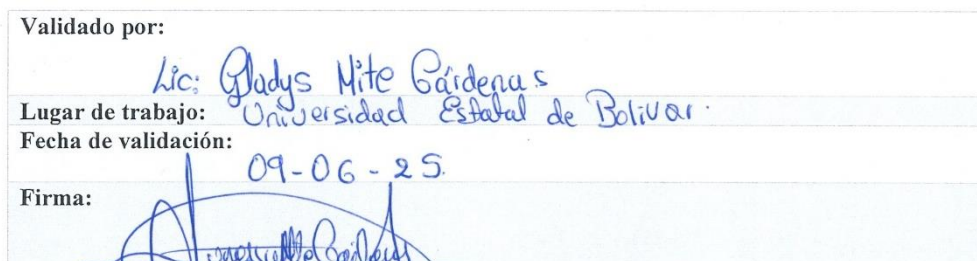 Validado por:
Lic: Gladys Mite Cárdenas
Lugar de trabajo: Universidad Estatal de Bolivar.
Fecha de validación:
09-06-25.
Firma: